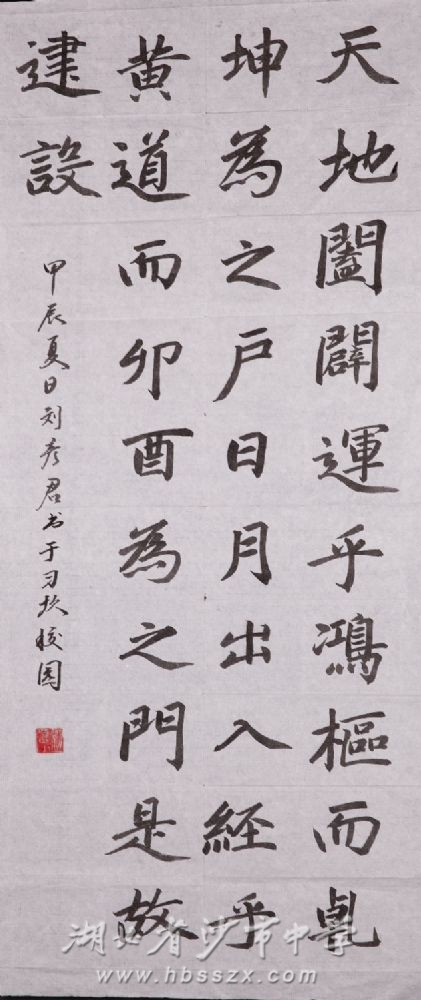 天地闔闢運乎鴻樞而乹
坤為之戶日月出入經乎
黄道而卯酉為之門是故
建設
甲辰夏日刘彦君书于习坎校园
湖北省沙市中学
www.hbsszx.com